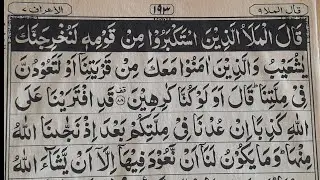 قال الملا ٩ ١٩٣ الاعراف ٧
قَالَ الْمَلَاُ الَّذِيْنَ اسْتَكْبَرُوْا مِنْ قَوْمِهٖ لَنُخْرِجَنَّكَ
يٰشُعَيْبُ وَالَّذِيْنَ اٰمَنُوْا مَعَكَ مِنْ قَرْيَتِنَاۤ اَوْ لَتَعُوْدُنَّ
فِيْ مِلَّتِنَا قَالَ اَوَلَوْ كُنَّا كٰرِهِيْنَ ﴿٨٨﴾ قَدِ افْتَرَيْنَا عَلَى
اللّٰهِ كَذِبًا اِنْ عُدْنَا فِيْ مِلَّتِكُمْ بَعْدَ اِذْ نَجّٰىنَا اللّٰهُ
مِنْهَا وَمَا يَكُوْنُ لَنَاۤ اَنْ نَّعُوْدَ فِيْهَاۤ اِلَّاۤ اَنْ يَّشَآءَ اللّٰهُ